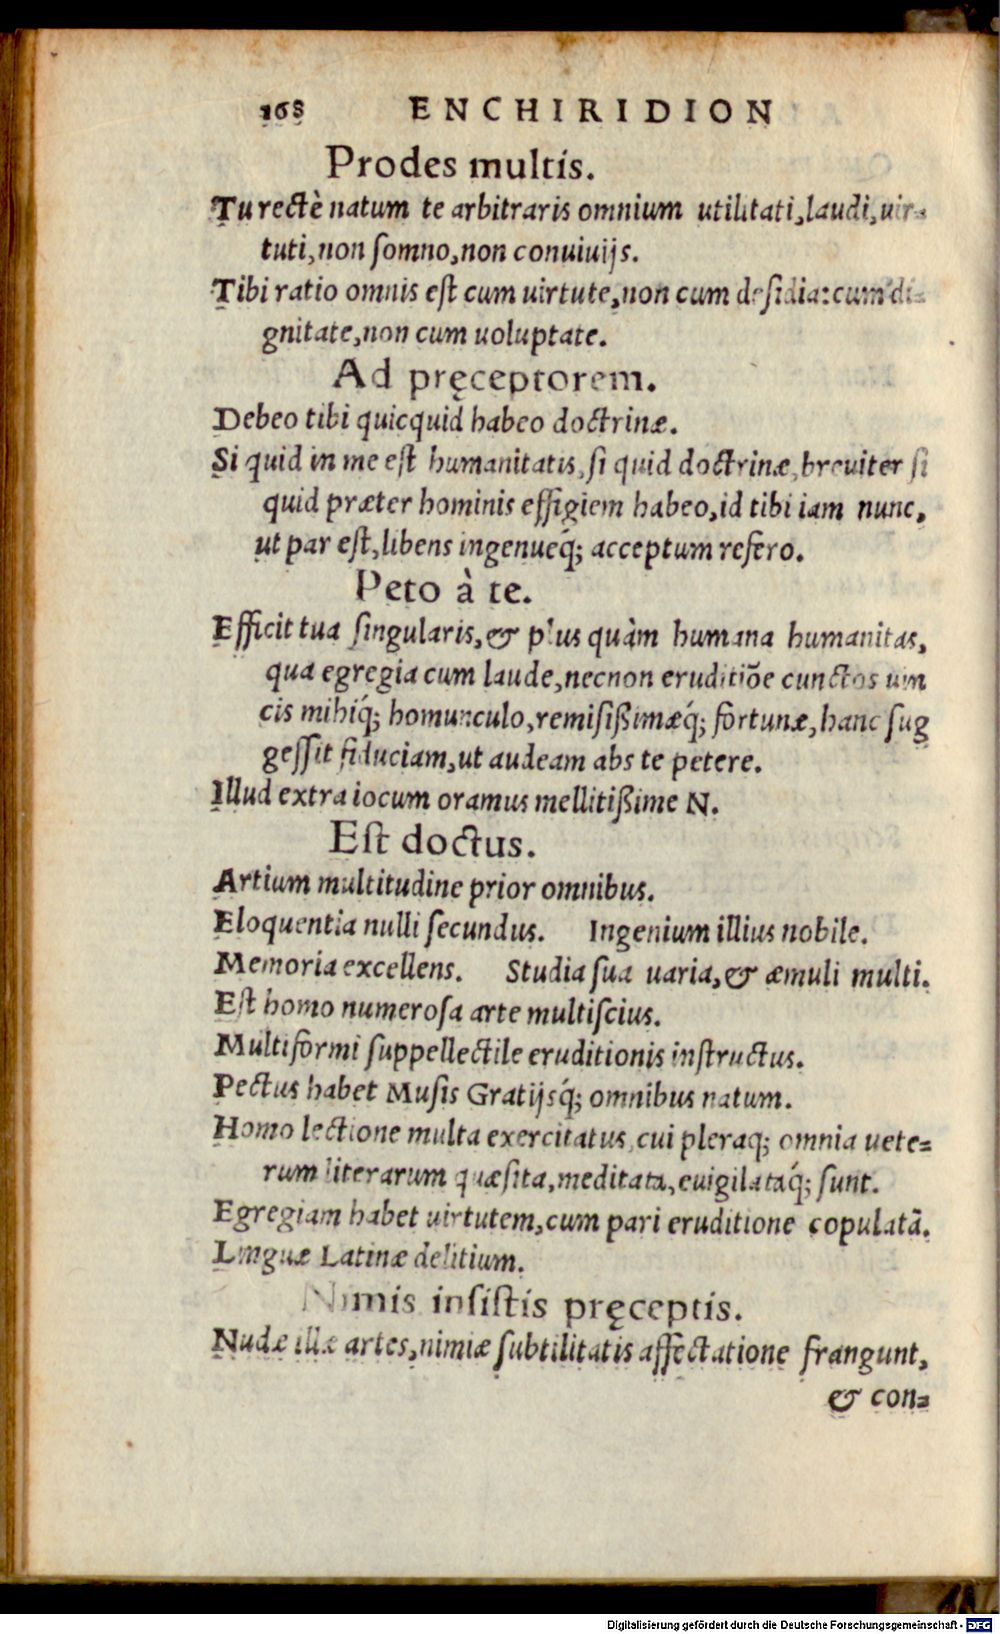 168 ENCHIRIDION
Prodes multis.
Tu rectè natum te arbitraris omnium utilitati, laudi, uir-
tuti, non somno, non conuiuijs.
Tibi ratio omnis est cum uirtute, non cum desidia: cum di-
gnitate, non cum uoluptate.
Ad pręceptorem.
Debeo tibi quicquid habeo doctrinæ.
Si quid in me est humanitatis, si quid doctrinæ, breuiter si
quid præter hominis effigiem habeo, id tibi iam nunc,
ut par est, libens ingenueq́; acceptum refero.
Peto à te.
Efficit tua singularis, & plus quàm humana humanitas,
qua egregia cum laude, necnon eruditiõe cunctos uin
cis mihiq́; homunculo, remisißimæq́; fortunæ, hanc sug
gessit fiduciam, ut audeam abs te petere.
Illud extra iocum oramus mellitißime N.
Est doctus.
Artium multitudine prior omnibus.
Eloquentia nulli secundus. Ingenium illius nobile.
Memoria excellens. Studia sua uaria, & æmuli multi.
Est homo numerosa arte multiscius.
Multiformi suppellectile eruditionis instructus.
Pectus habet Musis Gratijsq́; omnibus natum.
Homo lectione multa exercitatus, cui pleraq; omnia uete-
rum literarum quæsita, meditata, euigilataq́; sunt.
Egregiam habet uirtutem, cum pari eruditione copulatã.
Linguæ Latinæ delitium.
Nimis insistis pręceptis.
Nudæ illæ artes, nimiæ subtilitatis affectatione frangunt,
& con-
Digitalisierung gefördert durch die Deutsche Forschungsgemeinschaft - DFG